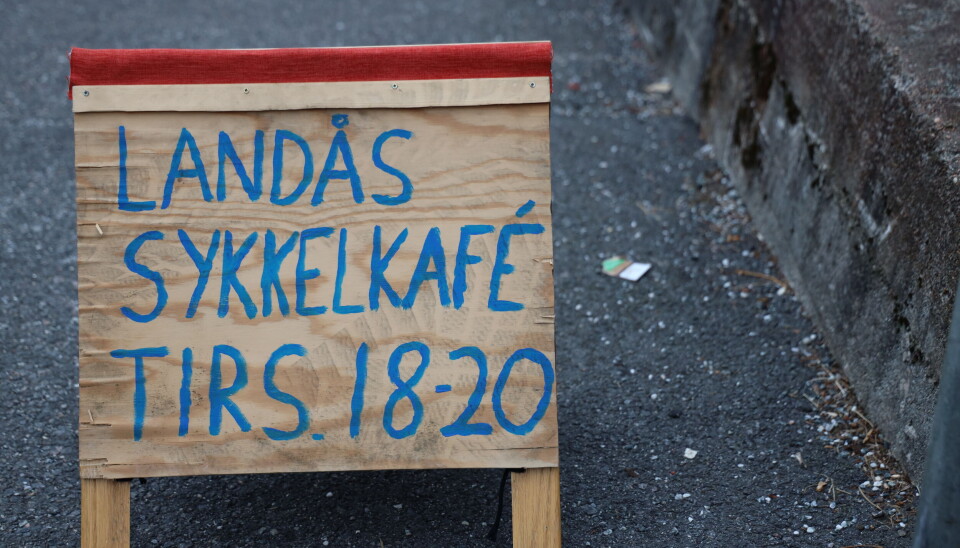 LANDÅS
SYKKELKAFÉ
TIRS. 18-20